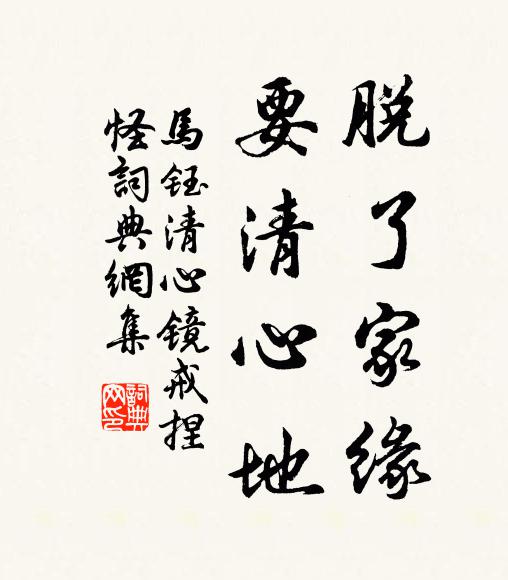 脱了家緣
要清心地
馬鈺清心鏡戒捏
怪詞典網集
詞典網印